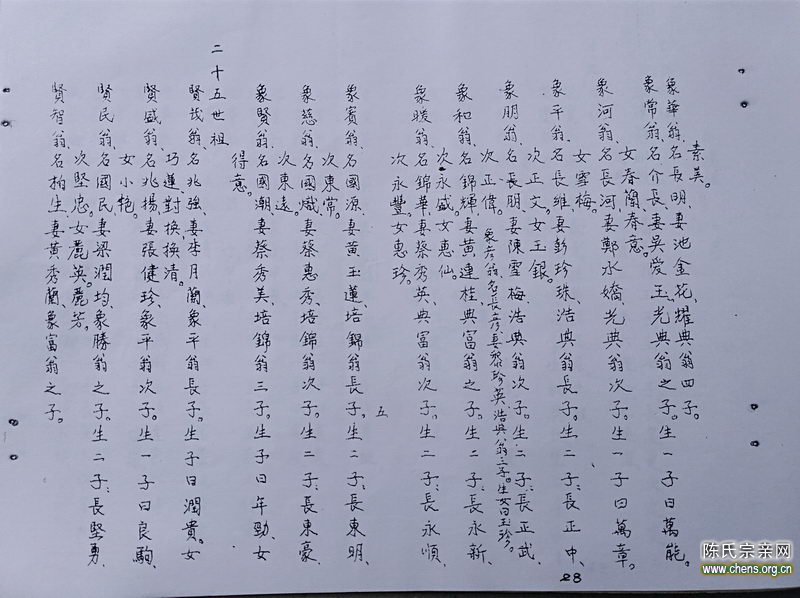 素美。
象華翁、名長明、妻池金花、耀典翁四子。
象常翁、名介長、妻吳愛玉、光典翁之子。生一子曰萬能。
女春蘭、春意。
象河翁、名長河、妻鄭水嬌、光典翁次子。生一子曰萬章。
女雪梅。
象平翁、名長維、妻彭珍珠、浩典翁長子。生二子、長正中、
次正文。女玉銀。
象朋翁、名長朋、妻陳雪梅、浩典翁次子。生二子、長正武、
次正偉。象彥翁、名長彥、妻黎珍英、浩典翁三子。生女曰玉珍。
象和翁、名錦輝、妻黃連桂、典富翁之子。生二子、長永新、
次永盛。女惠仙。
象暖翁、名錦華、妻蔡秀英、典富翁次子。生二子、長永順、
次永豐。女惠珍。
五
象賓翁、名國源、妻黃玉蓮、培錦翁長子。生二子、長東明、
次東常。
象慈翁、名國熾、妻蔡惠秀、培錦翁次子。生二子、長東豪、
次東遠。
象賢翁、名國潮、妻蔡秀美、培錦翁三子。生子曰年勁、女
得意。
二十五世祖
賢茂翁、名兆強、妻李月蘭、象平翁長子。生子曰潤貴。女
巧蓮對換、換清。
賢盛翁、名兆揚、妻張健珍、象平翁次子。生一子曰良駒、
女小艷。
賢民翁、名國民、妻梁潤均、象勝翁之子。生二子、長堅勇、
次堅忠。女麗英。麗芳。
賢智翁、名柏生、妻黃秀蘭、象富翁之子。
28
陈氏宗亲网
www.chens.org.cn